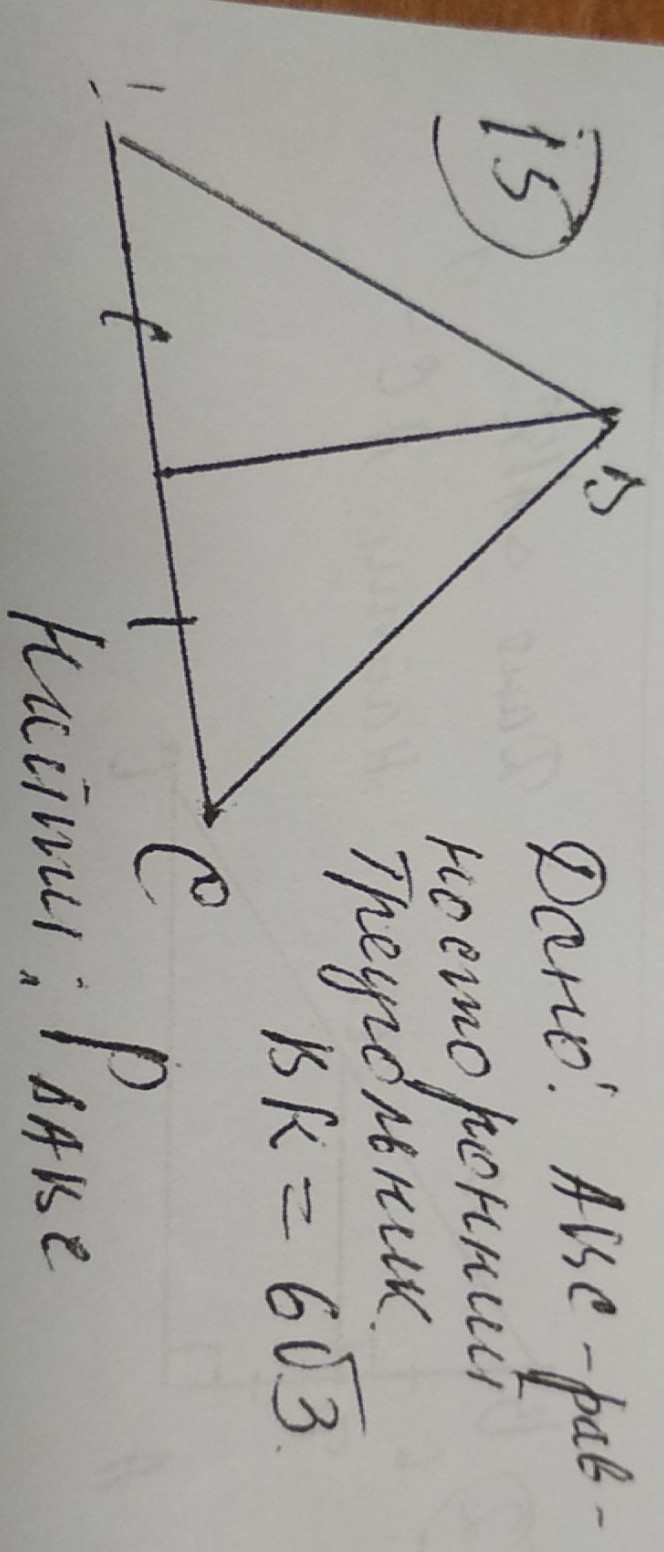 15
B
C
Дано: ABC - рав-
носторонний
треугольник.
BK = 6√3.
Найти: P ΔABC